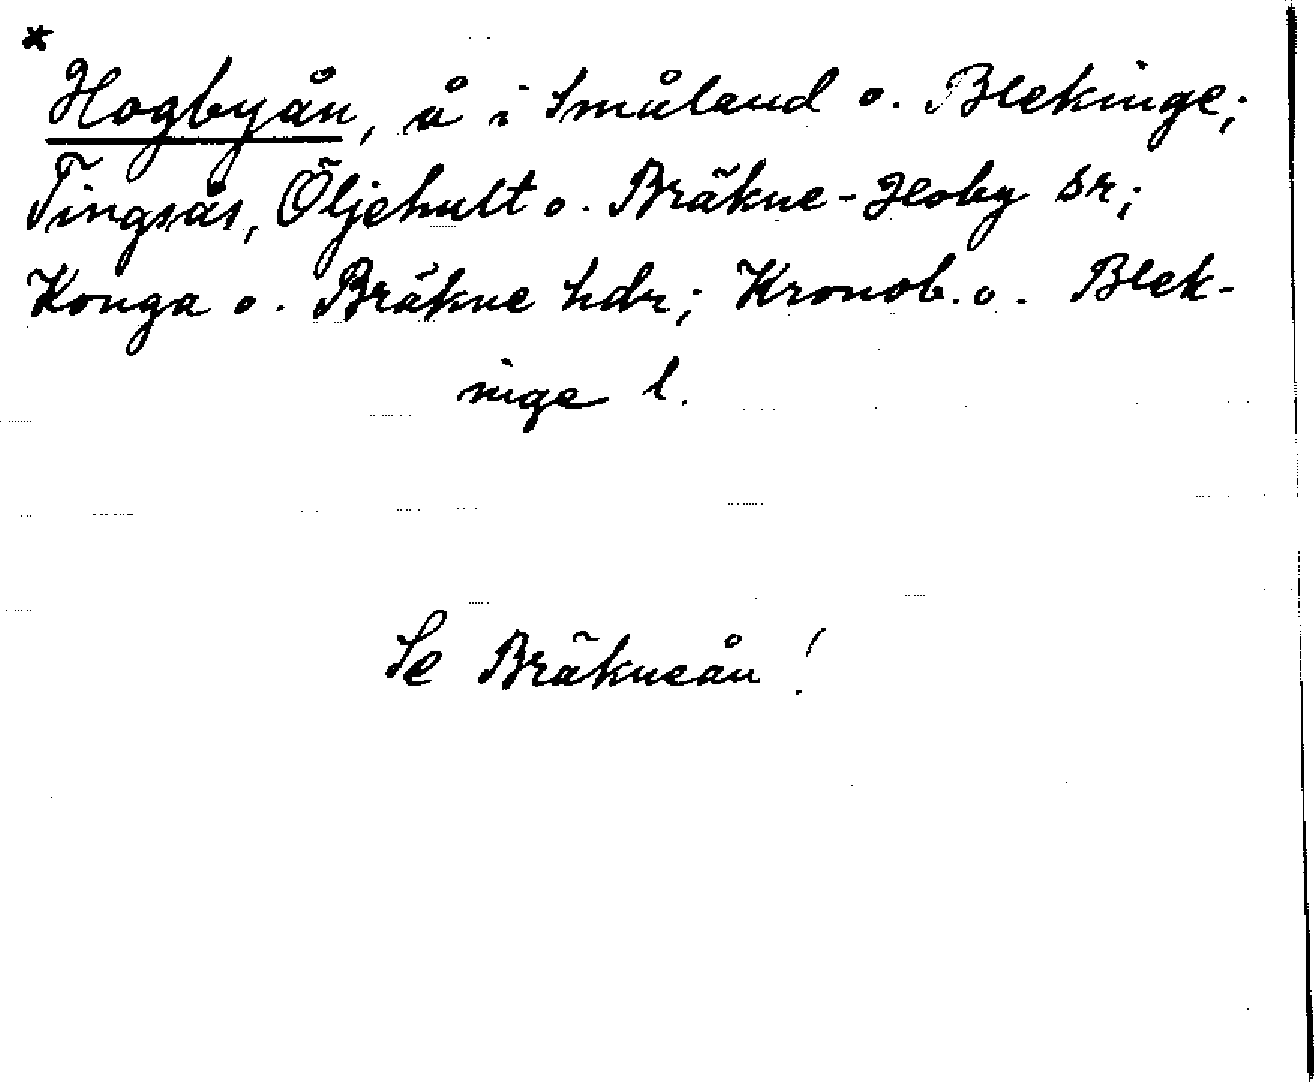 *
Hogbyån, å i Småland o. Blekinge;
Tingsås, Öljehult o. Bräkne-Hoby sr;
Konga o. Bräkne hdr; Kronob. o. Blek-
inge l.
Se Bräkneån!